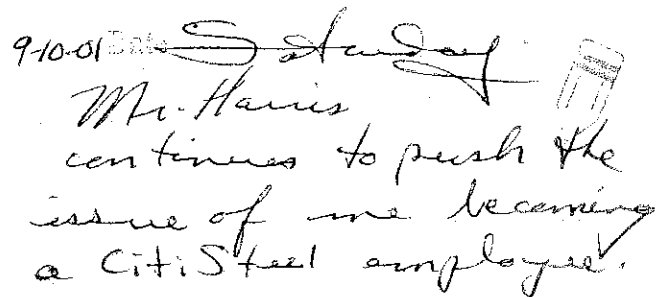 9-10-01 Date Saturday
Mr. Harris
continues to push the
issue of me becoming
a CitiSteel employee.